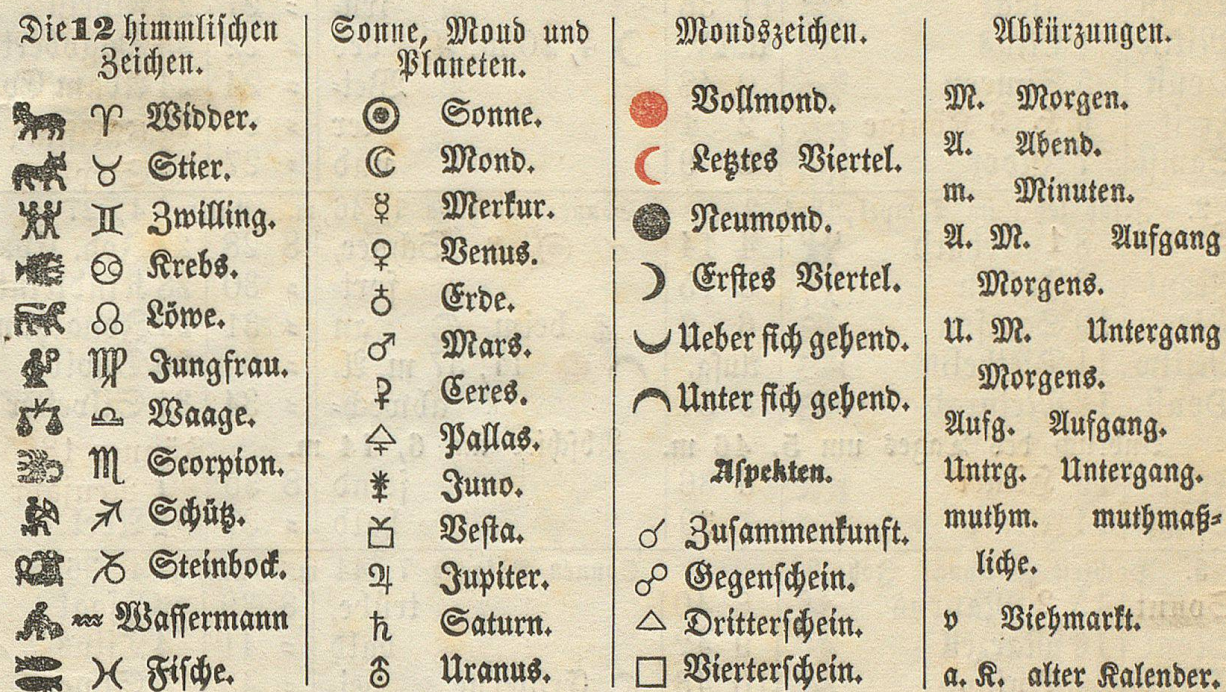 Die 12 himmlischen
Zeichen.
♈ Widder.
♉ Stier.
♊ Zwilling.
♋ Krebs.
♌ Löwe.
♍ Jungfrau.
♎ Waage.
♏ Scorpion.
♐ Schütz.
♑ Steinbock.
♒ Wassermann
♓ Fische.
Sonne, Mond und
Planeten.
☉ Sonne.
☾ Mond.
☿ Merkur.
♀ Venus.
♁ Erde.
♂ Mars.
⚳ Ceres.
⚴ Pallas.
⚵ Juno.
⚶ Vesta.
♃ Jupiter.
♄ Saturn.
⛢ Uranus.
Mondszeichen.
Vollmond.
Letztes Viertel.
Neumond.
Erstes Viertel.
Ueber sich gehend.
Unter sich gehend.
Aspekten.
☌ Zusammenkunft.
☍ Gegenschein.
△ Dritterschein.
□ Vierterschein.
Abkürzungen.
M. Morgen.
A. Abend.
m. Minuten.
A. M. Aufgang
Morgens.
U. M. Untergang
Morgens.
Aufg. Aufgang.
Untrg. Untergang.
muthm. muthmaß-
liche.
v Viehmarkt.
a. K. alter Kalender.